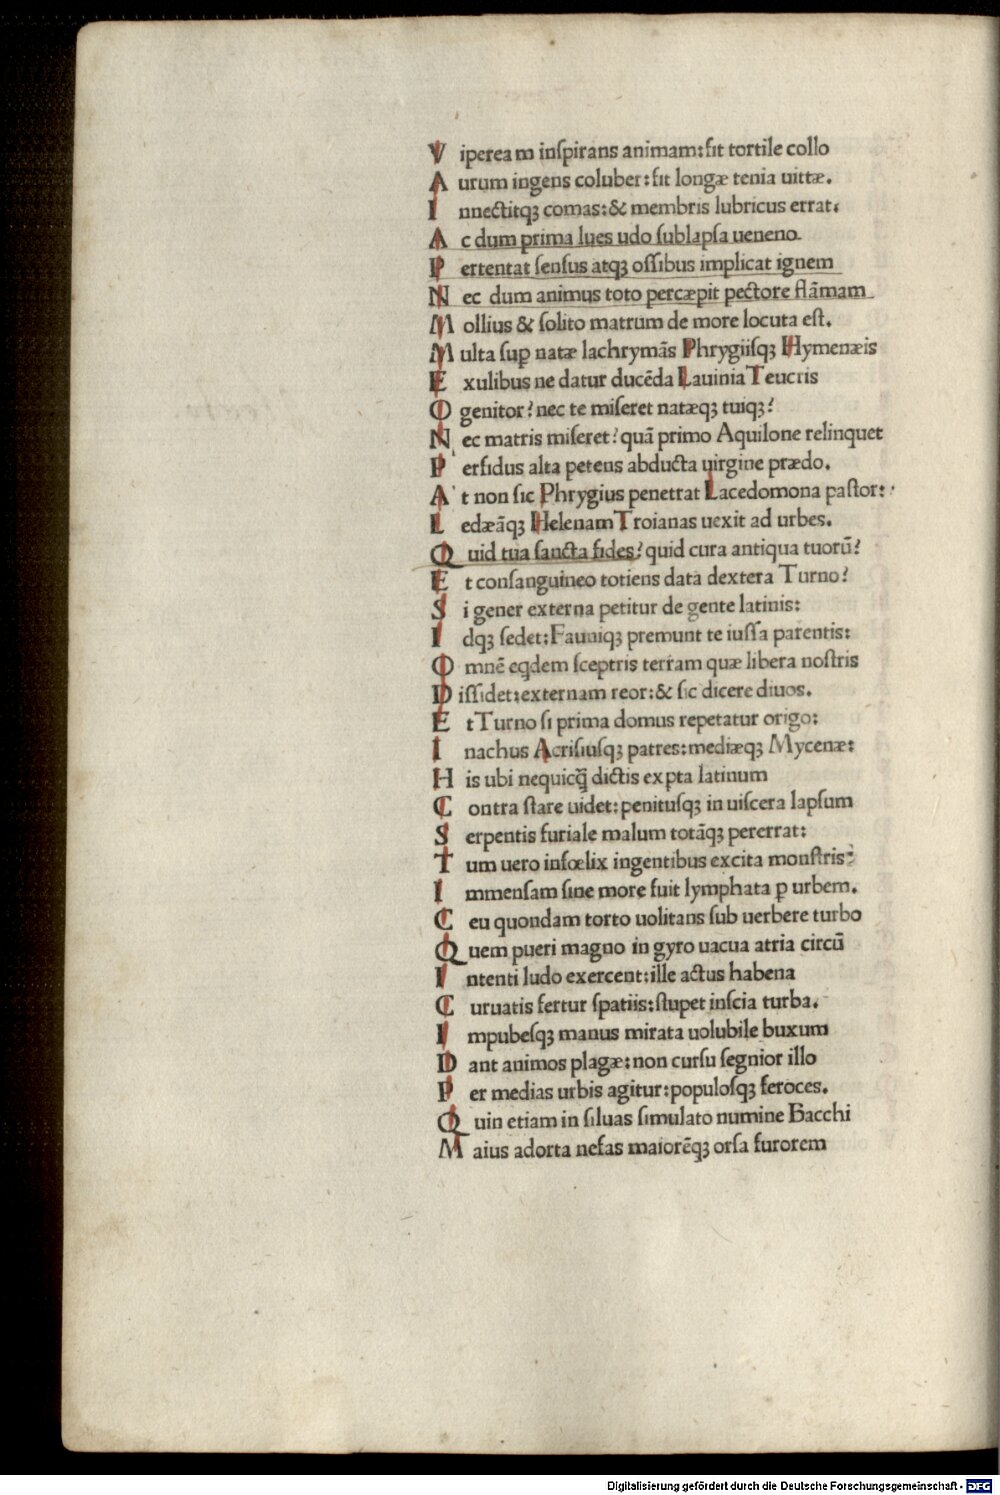 V iperea m inſpirans animam: fit tortile collo
A urum ingens coluber: fit longæ tenia uittæ.
I nnectitqꝫ comas: & membris lubricus errat.
A c dum prima lues udo ſublapſa ueneno.
P ertentat ſenſus atqꝫ oſſibus implicat ignem
N ec dum animus toto percæpit pectore flāmam
M ollius & ſolito matrum de more locuta eſt.
M ulta ſuꝑ natæ lachrymās Phrygiiſqꝫ Hymenæis
E xulibus ne datur ducēda Lauinia Teucris
O genitor? nec te miſeret natæqꝫ tuiqꝫ?
N ec matris miſeret? quā primo Aquilone relinquet
P erfidus alta petens abducta uirgine prædo.
A t non ſic Phrygius penetrat Lacedomona paſtor:
L edæāqꝫ Helenam Troianas uexit ad urbes.
Q uid tua ſancta fides? quid cura antiqua tuorū?
E t conſanguineo totiens data dextera Turno?
S i gener externa petitur de gente latinis:
I dqꝫ ſedet: Fauniqꝫ premunt te iuſſa parentis:
O mnē eqdem ſceptris terram quæ libera noſtris
D iſſidet: externam reor: & ſic dicere diuos.
E t Turno ſi prima domus repetatur origo:
I nachus Acriſiuſqꝫ patres: mediæqꝫ Mycenæ:
H is ubi nequicq̄ dictis exꝑta latinum
C ontra ſtare uidet: penituſqꝫ in uiſcera lapſum
S erpentis furiale malum totāqꝫ pererrat:
T um uero infœlix ingentibus excita monſtris:
I mmenſam ſine more fuit lymphata ꝑ urbem.
C eu quondam torto uolitans ſub uerbere turbo
Q uem pueri magno in gyro uacua atria circū
I ntenti ludo exercent: ille actus habena
C uruatis fertur ſpatiis: ſtupet inſcia turba.
I mpubeſqꝫ manus mirata uolubile buxum
D ant animos plagæ: non curſu ſegnior illo
P er medias urbis agitur: populoſqꝫ feroces.
Q uin etiam in ſiluas ſimulato numine Bacchi
M aius adorta nefas maiorēqꝫ orſa furorem
Digitalisierung gefördert durch die Deutsche Forschungsgemeinschaft - DFG